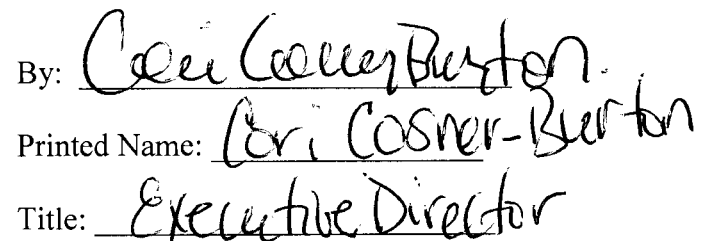 By: Cori Cosner Burton
Printed Name: Cori Cosner-Burton
Title: Executive Director